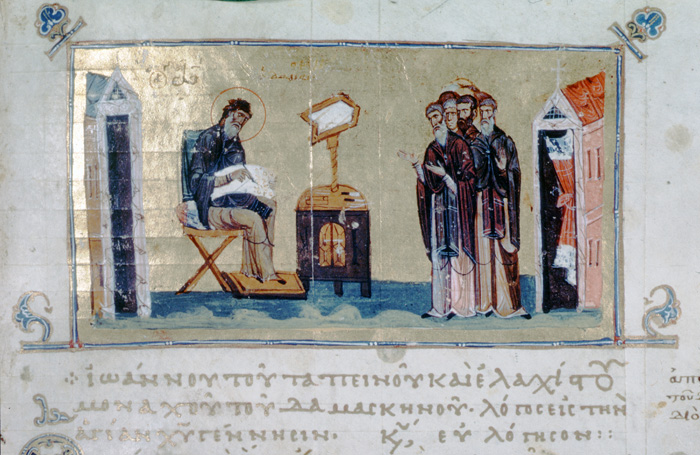 ✢ ἸΩΆΝΝΟΥ ΤΟΥ ΤΑΠΕΙΝΟΥ ΚΑΙ ἘΛΑΧΊΣΤΟΥ
ΜΟΝΑΧΟΥ ΤΟΥ ΔΑΜΑΣΚΗΝΟΥ· ΛΌΓΟΣ ΕΙΣ ΤῊΝ
ἉΓΊΑΝ ΧΥ ΓΈΝΝΗΣΙΝ· ΕΥΛΌΓΗΣΟΝ::